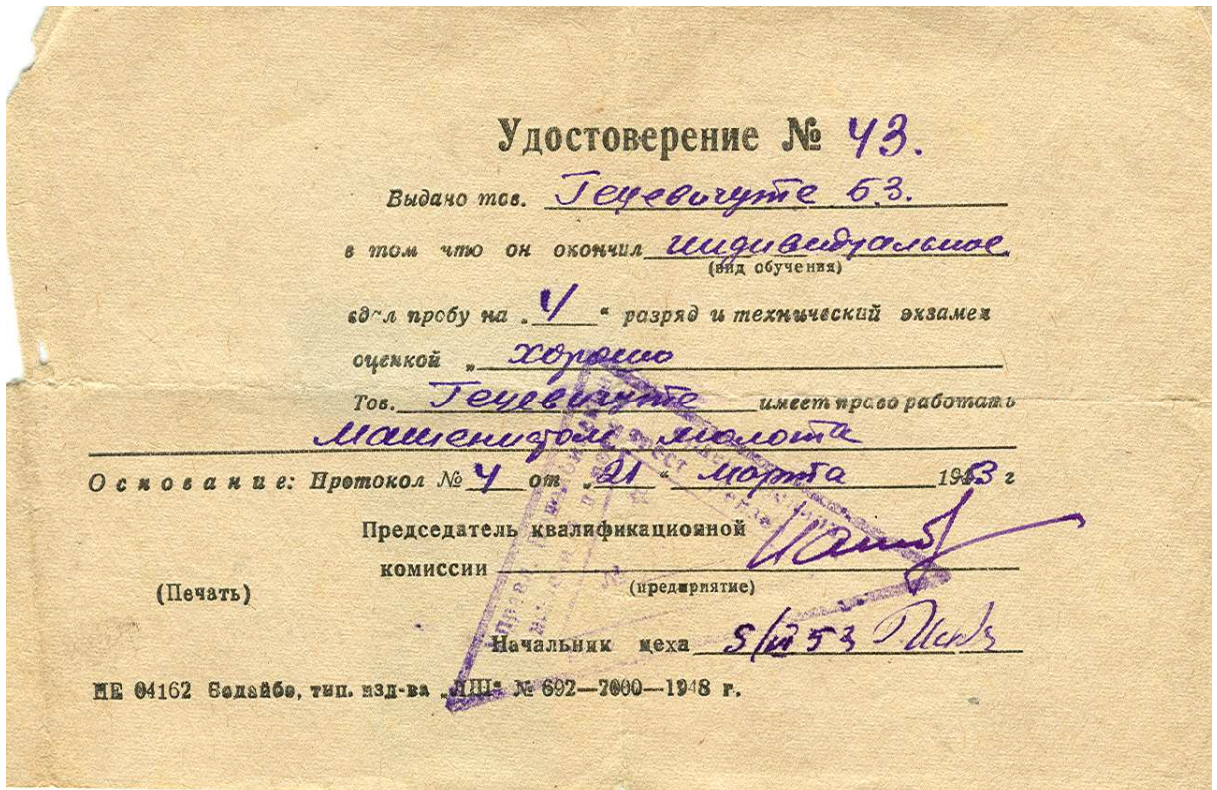 Удостоверение № 43.
Выдано тов. Гецевичуте Б.З.
в том что он окончил индивидуальное
(вид обучения)
сдал пробу на „4“ разряд и технический экзамен
оценкой „ хорошо
Тов. Гецевичуте имеет право работать
Машенистом молота
Основание: Протокол № 4 от „21“ марта 1953 г
Председатель квалификационной
комиссии
(предприятие)
(Печать)
Начальник цеха 5/IV 53
НЕ 04162 Бодайбо, тип. изд-ва „ЛШ“ № 692—7000—1948 г.